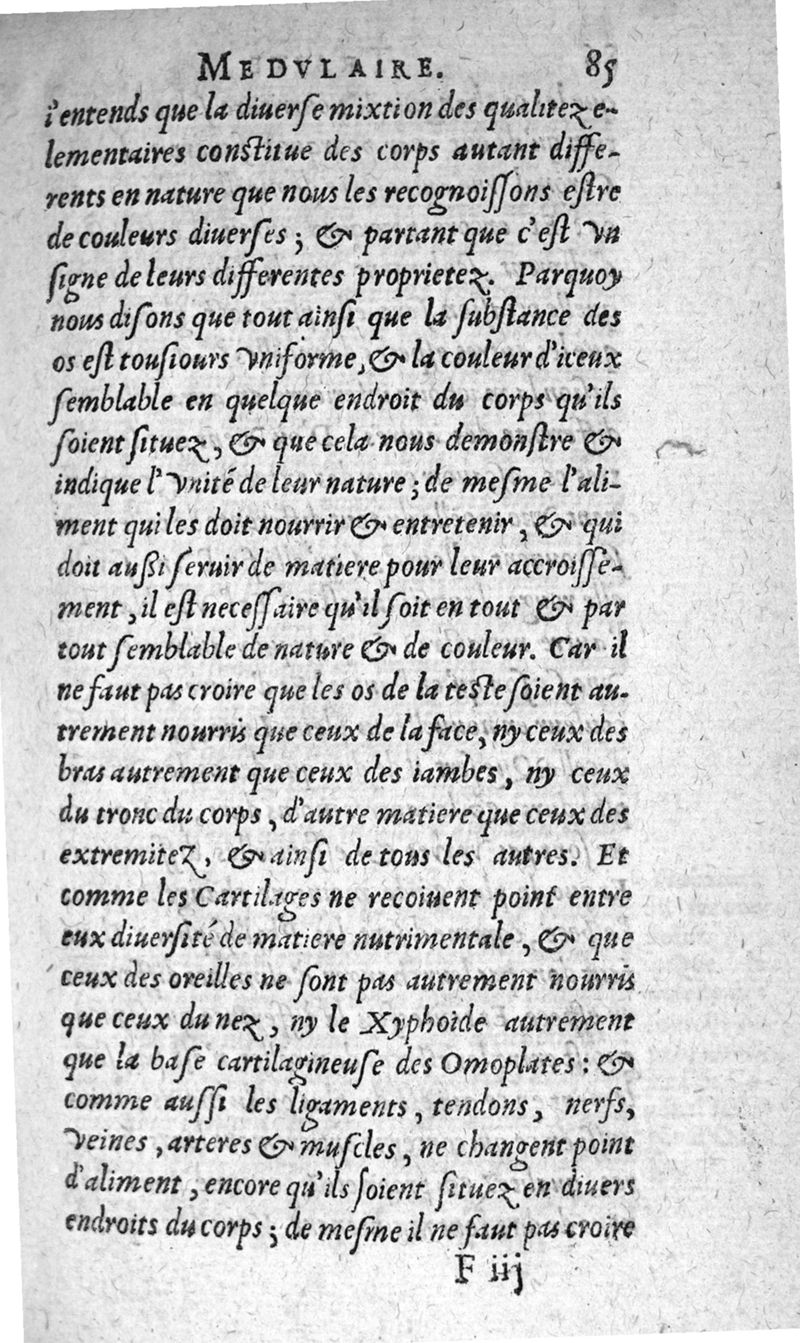 MEDVLAIRE. 85
i'entends que la diuerse mixtion des qualitez e-
lementaires constitue des corps autant diffe-
rents en nature que nous les recognoissons estre
de couleurs diuerses ; & partant que c'est vn
signe de leurs differentes proprietez. Parquoy
nous disons que tout ainsi que la substance des
os est tousiours vniforme, & la couleur d'iceux
semblable en quelque endroit du corps qu'ils
soient situez, & que cela nous demonstre &
indique l'vnité de leur nature ; de mesme l'ali-
ment qui les doit nourrir & entretenir, & qui
doit aussi seruir de matiere pour leur accroisse-
ment, il est necessaire qu'il soit en tout & par
tout semblable de nature & de couleur. Car il
ne faut pas croire que les os de la teste soient au-
trement nourris que ceux de la face, ny ceux des
bras autrement que ceux des iambes, ny ceux
du tronc du corps, d'autre matiere que ceux des
extremitez, & ainsi de tous les autres. Et
comme les Cartilages ne recoiuent point entre
eux diuersité de matiere nutrimentale, & que
ceux des oreilles ne sont pas autrement nourris
que ceux du nez, ny le Xyphoide autrement
que la base cartilagineuse des Omoplates : &
comme aussi les ligaments, tendons, nerfs,
veines, arteres & muscles, ne changent point
d'aliment, encore qu'ils soient situez en diuers
endroits du corps ; de mesme il ne faut pas croire
F iij